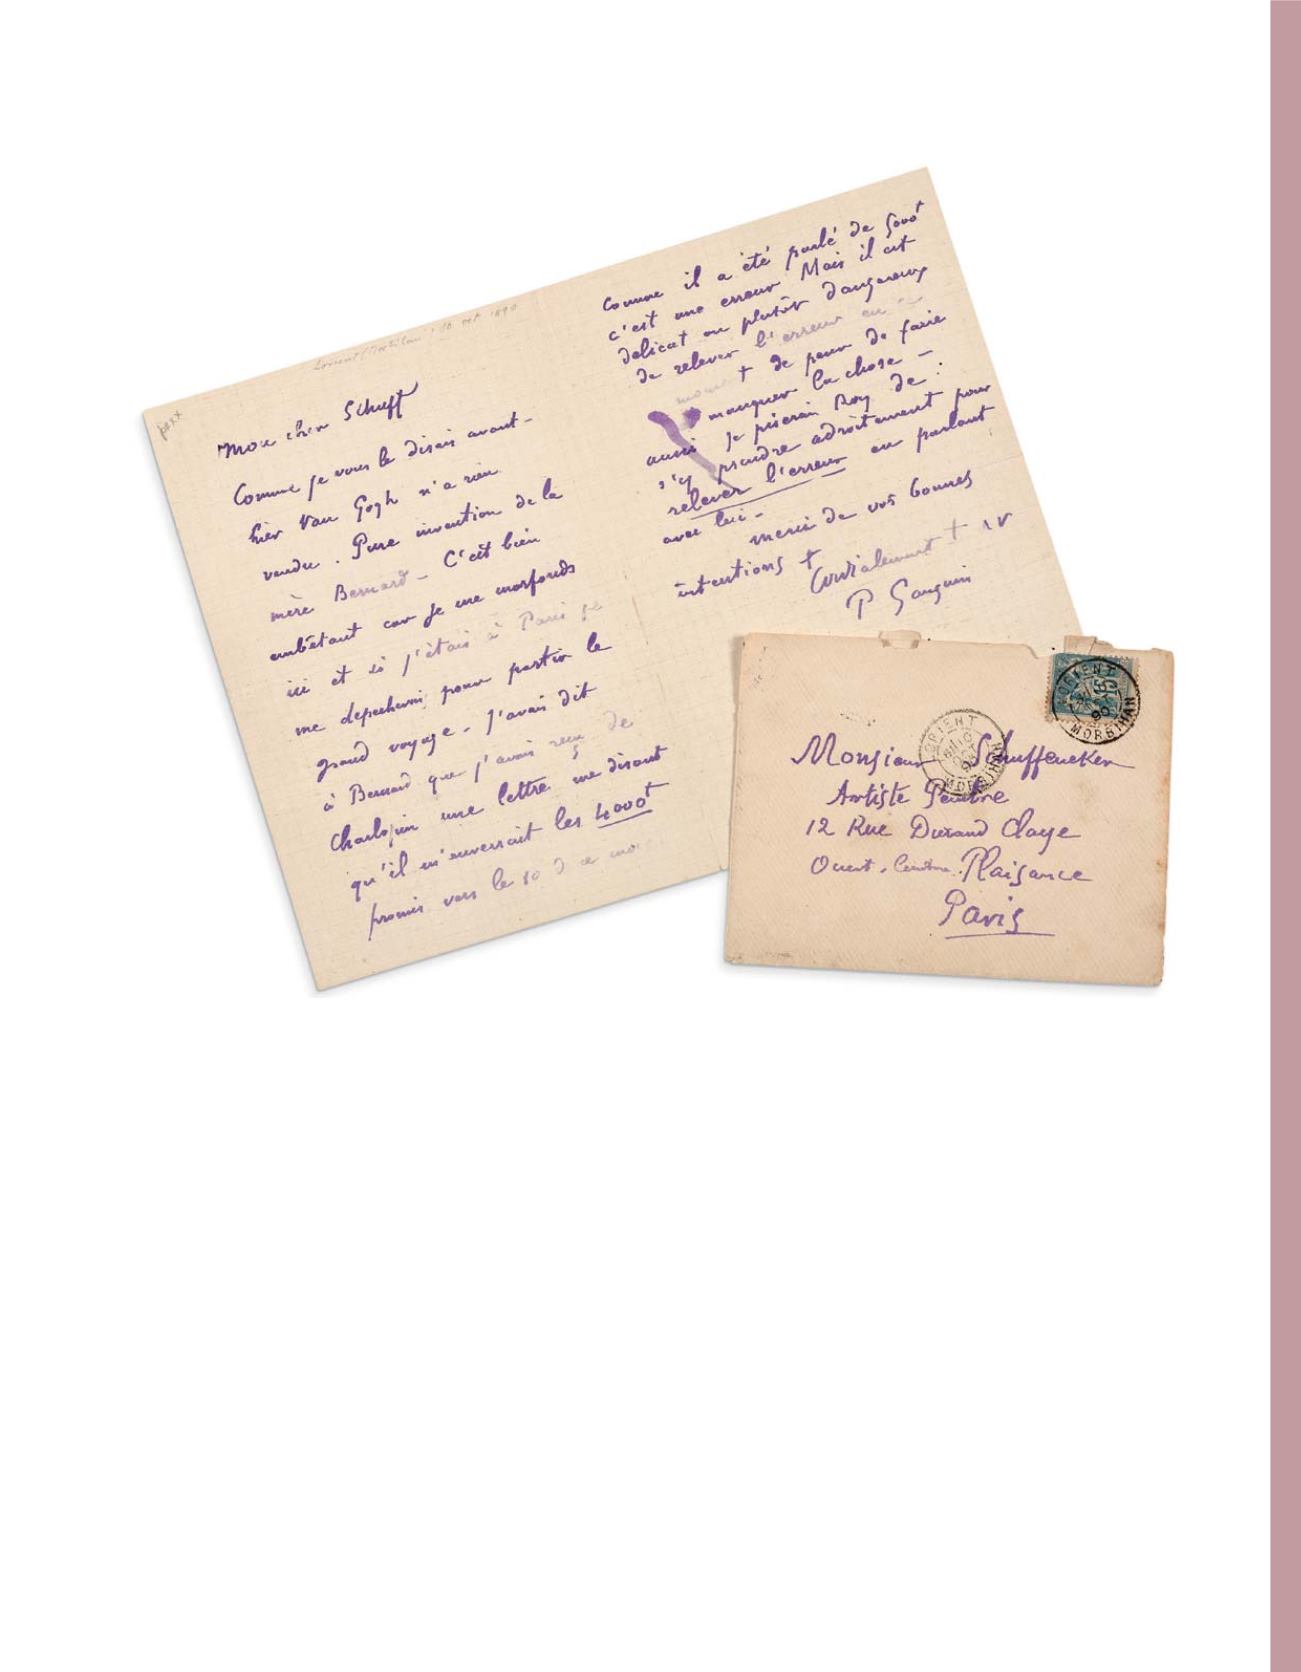 Lorient (Morbihan) 10 oct 1890
Mon cher Schuff
Comme je vous le disais avant-
hier Van Gogh n'a rien
vendu. Pure invention de la
mère Bernard - C'est bien
embêtant car je me morfonds
ici et si j'étais à Paris je
me depecherais pour partir le
grand voyage - J'avais dit
à Bernard que j'avais reçu de
Charlopin une lettre me disant
qu'il m'enverrait les 4000f
promis vers le 10 de ce mois.
Comme il a été parlé de 5000f
c'est une erreur Mais il est
délicat ou plutôt dangereux
de relever l'erreur en ce
moment de peur de faire
manquer la chose -
aussi je prierai Roy de
s'y prendre adroitement pour
relever l'erreur en parlant
avec lui -
merci de vos bonnes
intentions +
Cordialement +
P Gauguin
Monsieur Schuffeneker
Artiste Peintre
12 Rue Durand Claye
Ouest. Ceinture. Plaisance
Paris
LORIENT
MORBIHAN
LORIENT
15
90
MORBIHAN